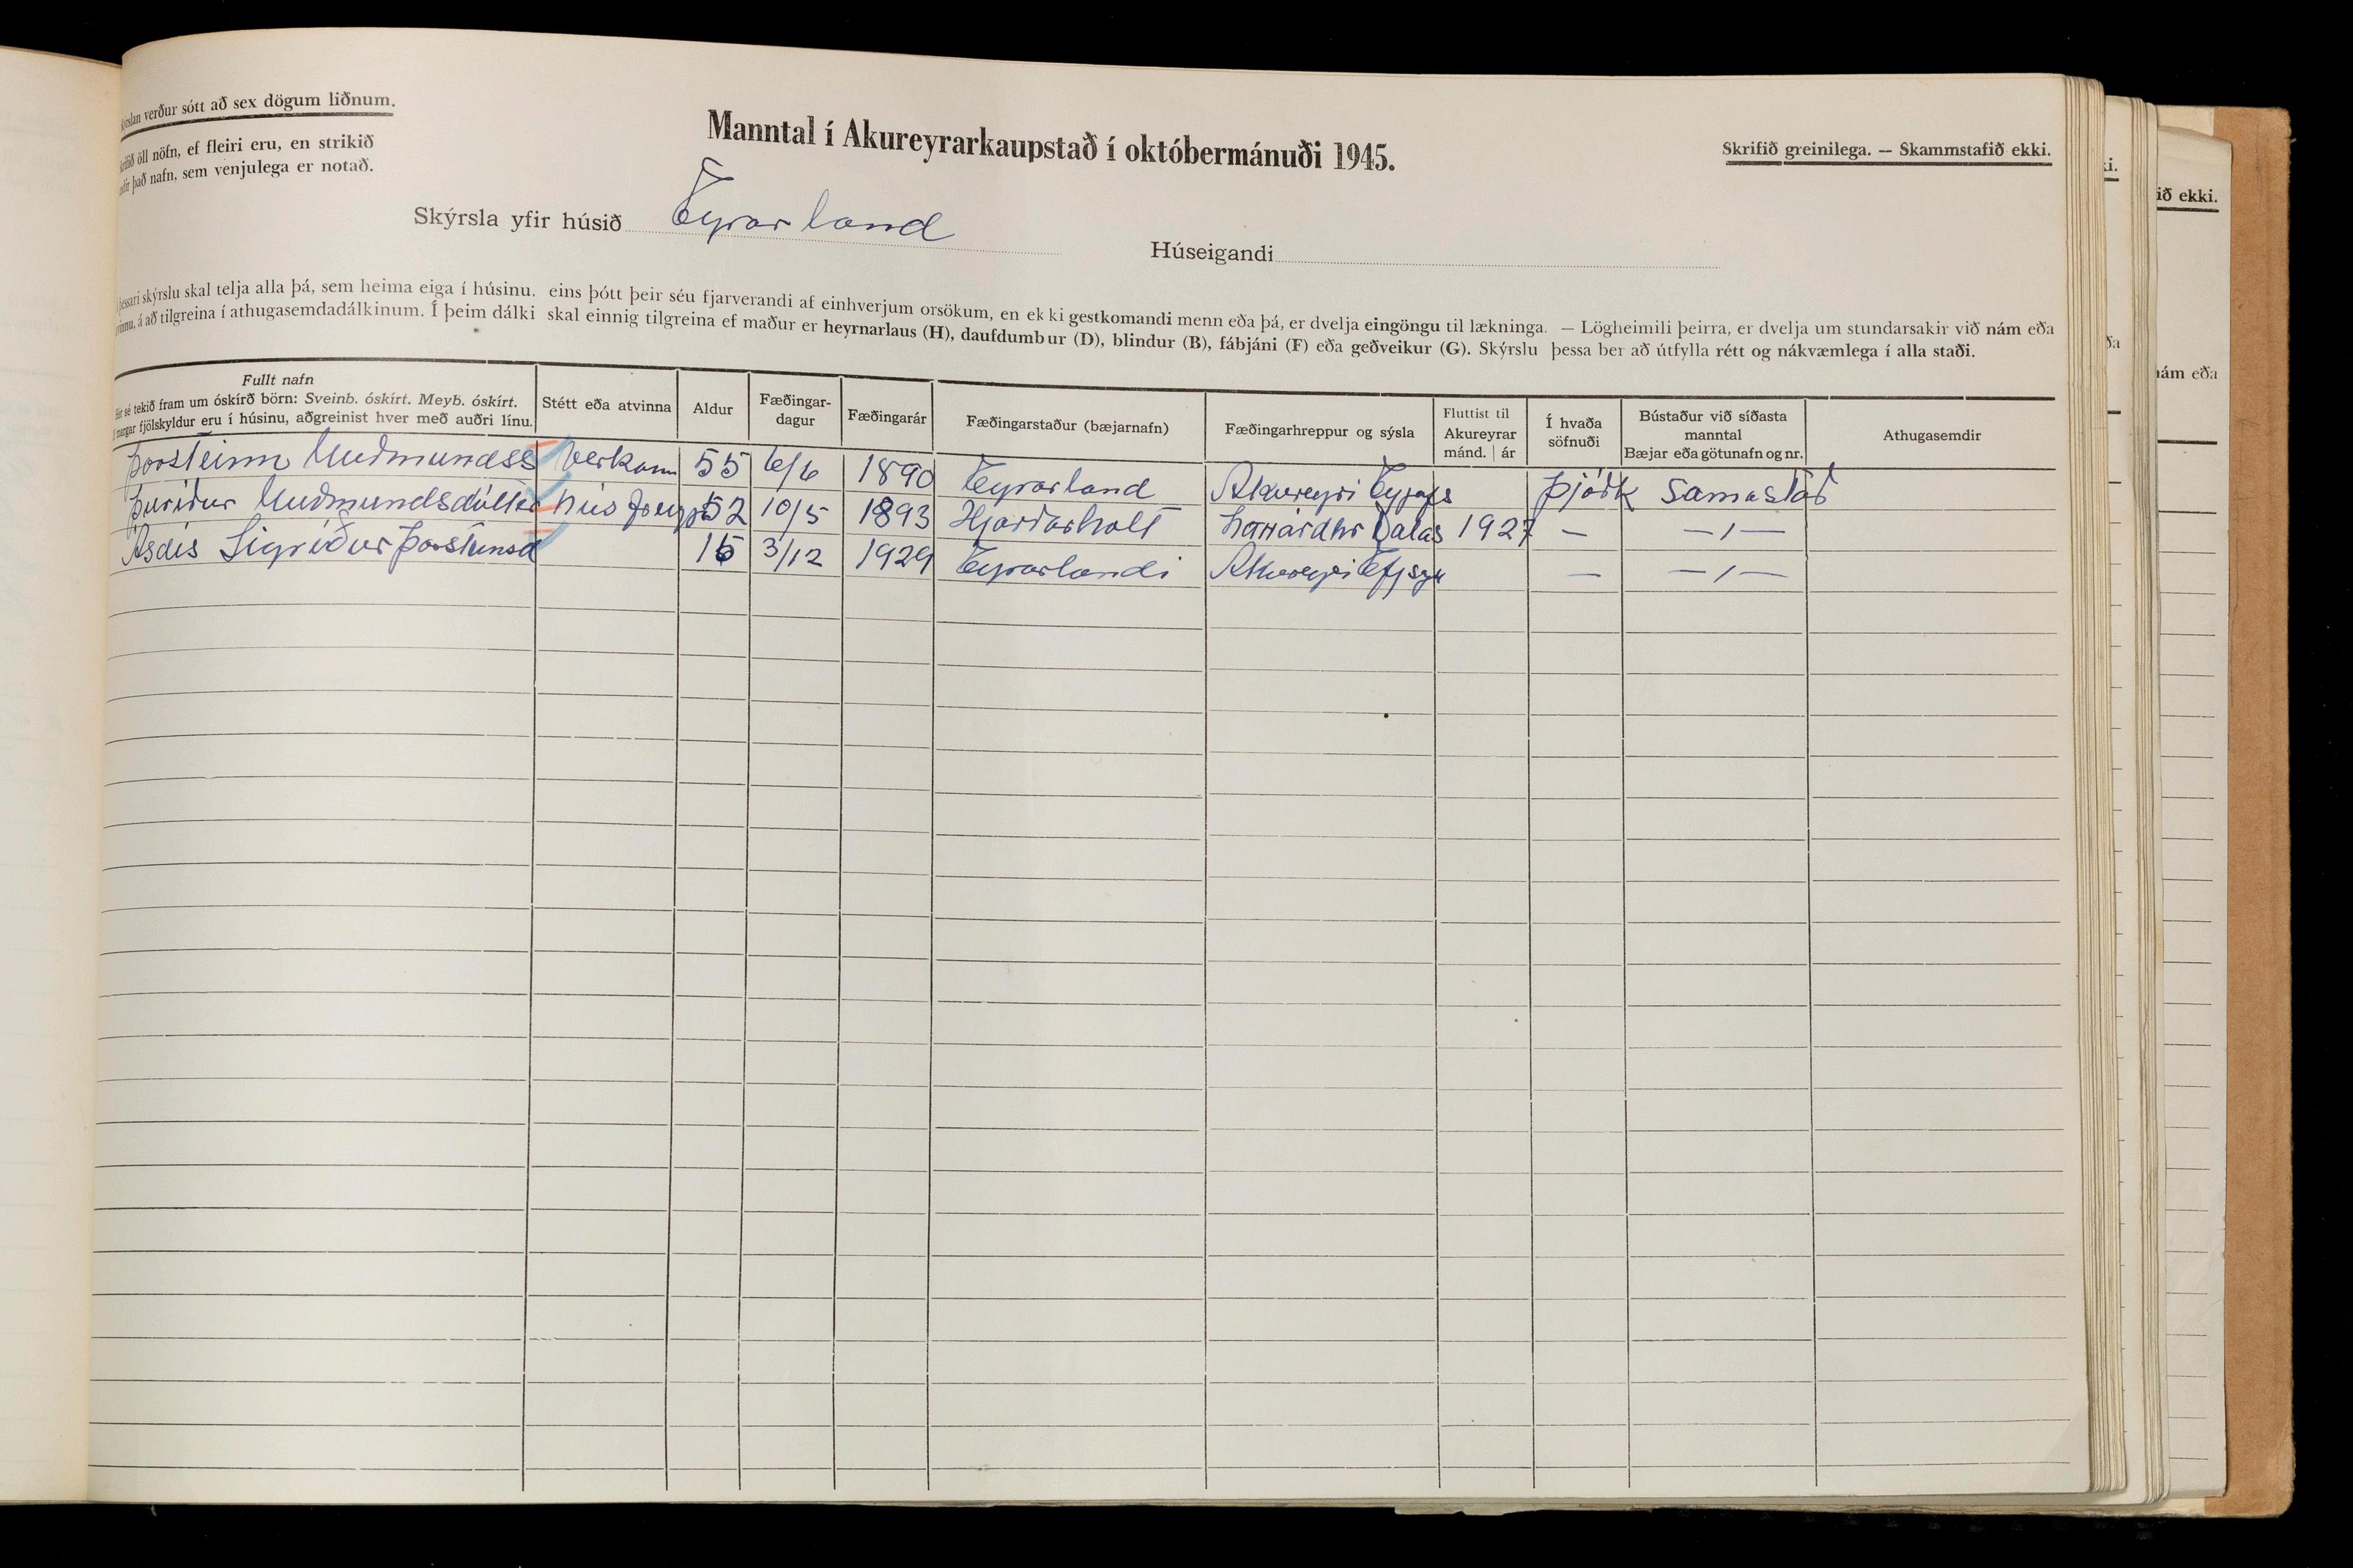 Skýrslan verður sótt að sex dögum liðnum.
öll nöfn, ef fleiri eru, en strikið
það nafn, sem venjulega er notað.
Manntal í Akureyrarkaupstað í októbermánuði 1945.
Skrifið greinilega. — Skammstafið ekki.
Skýrsla yfir húsið Eyrarland
Húseigandi
þessari skýrslu skal telja alla þá, sem heima eiga í húsinu, eins þótt þeir séu fjarverandi af einhverjum orsökum, en ekki gestkomandi menn eða þá, er dvelja eingöngu til lækninga. — Lögheimili þeirra, er dvelja um stundarsakir við nám eða
vinnu, á að tilgreina í athugasemdadálkinum. Í þeim dálki skal einnig tilgreina ef maður er heyrnarlaus (H), daufdumbur (D), blindur (B), fábjáni (F) eða geðveikur (G). Skýrslu þessa ber að útfylla rétt og nákvæmlega í alla staði.
Fullt nafn
Hér sé tekið fram um óskírð börn: Sveinb. óskírt. Meyb. óskírt.
margar fjölskyldur eru í húsinu, aðgreinist hver með auðri línu.
Stétt eða atvinna
Aldur
Fæðingar-
dagur
Fæðingarár
Fæðingarstaður (bæjarnafn)
Fæðingarhreppur og sýsla
Fluttist til
Akureyrar
mánd. | ár
Í hvaða
söfnuði
Bústaður við síðasta
manntal
Bæjar eða götunafn og nr.
Athugasemdir
Þorsteinn Guðmundss Verkam 55 6/6 1890 Eyrarland Akureyri Eyjafs Þjóðk Samastað
Þuríður Guðmundsdóttir 52 10/5 1893 Hjarðarholt Dalas 1927 — —〃—
Ásdís Sigríður Þorsteinsd 15 3/12 1929 Eyrarlandi Akureyri — —〃—
ið ekki.
nám eða